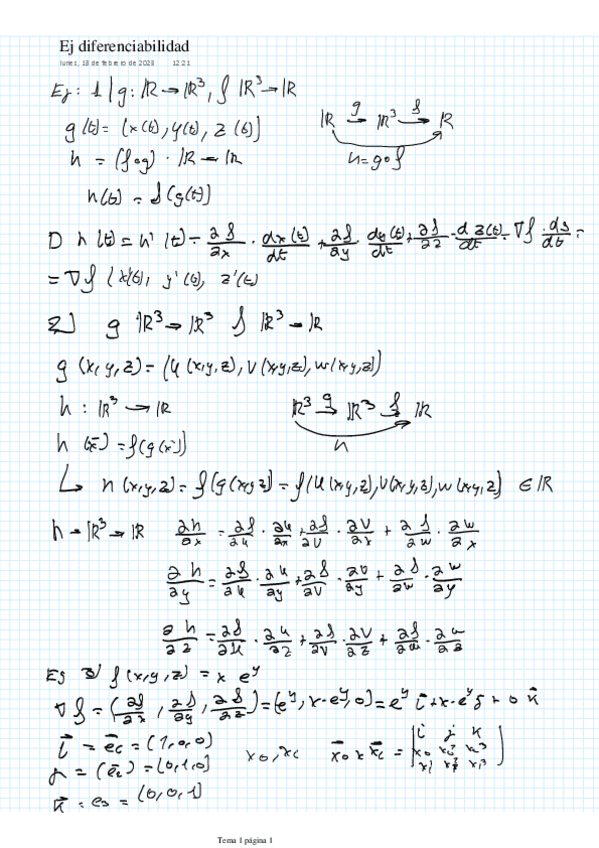 Ej diferenciabilidad
lunes, 13 de febrero de 2023 12:21
Ej: 1 | g: ℝ → ℝ³, f ℝ³ → ℝ
g(t) = (x(t), y(t), z(t))
ℝ →g ℝ³ →f ℝ
h = (f∘g) · ℝ → ℝ
h = g∘f
h(t) = f(g(t))
D h(t) = h'(t) = ∂f/∂x · dx(t)/dt + ∂f/∂y · dy(t)/dt + ∂f/∂z · dz(t)/dt = ∇f · dg/dt =
= ∇f (x'(t), y'(t), z'(t)
2) g ℝ³ → ℝ³ f ℝ³ → ℝ
g(x, y, z) = (u(x,y,z), v(x,y,z), w(x,y,z))
h : ℝ³ → ℝ
ℝ³ →g ℝ³ →f ℝ
h(x̄) = f(g(x̄))
h
↳ h(x,y,z) = f(g(x,y,z)) = f(u(x,y,z), v(x,y,z), w(x,y,z)) ∈ ℝ
h = ℝ³ → ℝ ∂h/∂x = ∂f/∂u · ∂u/∂x + ∂f/∂v · ∂v/∂x + ∂f/∂w · ∂w/∂x
∂h/∂y = ∂f/∂u · ∂u/∂y + ∂f/∂v · ∂v/∂y + ∂f/∂w · ∂w/∂y
∂h/∂z = ∂f/∂u · ∂u/∂z + ∂f/∂v · ∂v/∂z + ∂f/∂w · ∂w/∂z
Ej 3) f(x,y,z) = x e^y
∇f = (∂f/∂x, ∂f/∂y, ∂f/∂z) = (e^y, x·e^y, 0) = e^y i⃗ + x·e^y j + 0 k⃗
i⃗ = e⃗₁ = (1,0,0)
x₀, x₁ x⃗₀ × x⃗₁ = | i j k
x₀ x₂ x₃
x₁ x₂ x₃ |
j = (e⃗₂) = (0,1,0)
k⃗ = e₃ = (0,0,1)
Tema 1 página 1